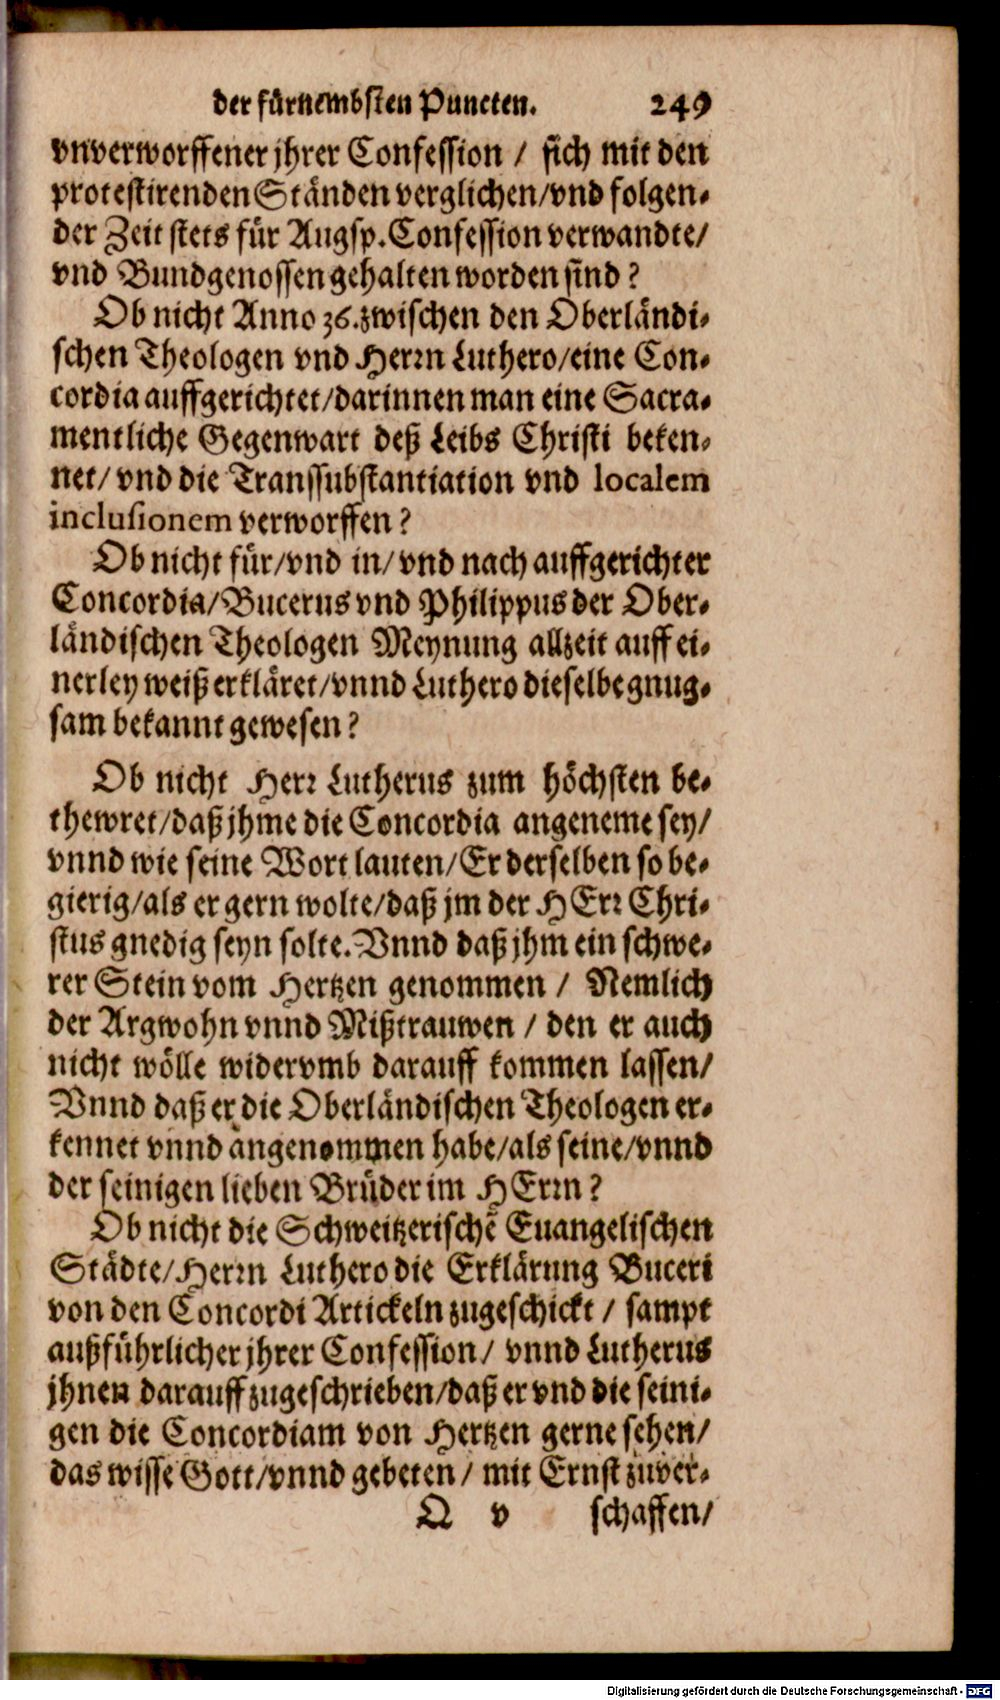 der fürnembsten Puncten. 249
vnverworffener jhrer Confession / sich mit den
protestirenden Ständen verglichen/vnd folgen-
der Zeit stets für Augsp. Confession verwandte/
vnd Bundgenossen gehalten worden sind?
Ob nicht Anno 36. zwischen den Oberländi-
schen Theologen vnd Herrn Luthero/eine Con-
cordia auffgerichtet/darinnen man eine Sacra-
mentliche Gegenwart deß Leibs Christi beken-
net/ vnd die Transsubstantiation vnd localem
inclusionem verworffen?
Ob nicht für/vnd in/ vnd nach auffgerichter
Concordia/Bucerus vnd Philippus der Ober-
ländischen Theologen Meynung allzeit auff ei-
nerley weiß erkläret/vnnd Luthero dieselbe gnug-
sam bekannt gewesen?
Ob nicht Herr Lutherus zum höchsten be-
thewret/daß jhme die Concordia angeneme sey/
vnnd wie seine Wort lauten/Er derselben so be-
gierig/als er gern wolte/daß jm der HErr Chri-
stus gnedig seyn solte. Vnnd daß jhm ein schwe-
rer Stein vom Hertzen genommen / Nemlich
der Argwohn vnnd Mißtrauwen / den er auch
nicht wölle widervmb darauff kommen lassen/
Vnnd daß er die Oberländischen Theologen er-
kennet vnnd angenommen habe/als seine/vnnd
der seinigen lieben Brüder im HErrn?
Ob nicht die Schweitzerischē Euangelischen
Städte/Herrn Luthero die Erklärung Buceri
von den Concordi Artickeln zugeschickt / sampt
außführlicher jhrer Confession/ vnnd Lutherus
jhnen darauff zugeschrieben/daß er vnd die seini-
gen die Concordiam von Hertzen gerne sehen/
das wisse Gott/vnnd gebeten/ mit Ernst zuver-
Q v schaffen/
Digitalisierung gefördert durch die Deutsche Forschungsgemeinschaft - DFG